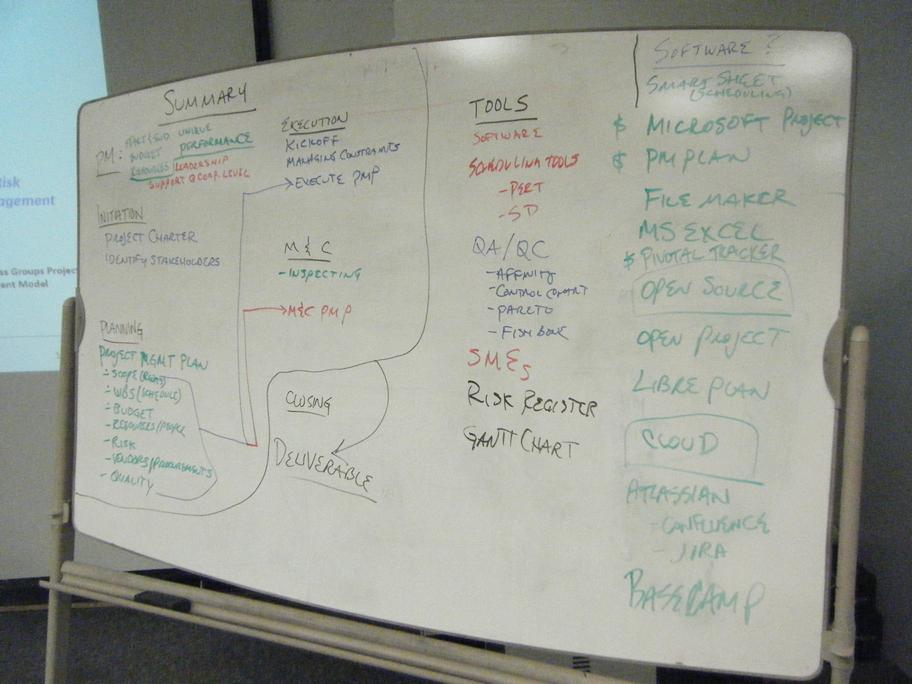 isk
agement
ss Groups Projec
ent Model
SUMMARY
PM: START/END UNIQUE
BUDGET PERFORMANCE
RESOURCES LEADERSHIP
SUPPORT @ CORP. LEVEL
INITIATION
PROJECT CHARTER
IDENTIFY STAKEHOLDERS
PLANNING
PROJECT MGMT PLAN
- SCOPE
- WBS (SCHEDULE)
- BUDGET
- RESOURCES/PEOPLE
- RISK
- VENDORS/PROCUREMENTS
- QUALITY
EXECUTION
KICKOFF
MANAGING CONSTRAINTS
EXECUTE PMP
M & C
- INSPECTING
M&C PMP
CLOSING
DELIVERABLE
TOOLS
SOFTWARE
SCHEDULING TOOLS
- PERT
- SD
QA/QC
- AFFINITY
- CONTROL CHART
- PARETO
- FISH BONE
SMEs
RISK REGISTER
GANTT CHART
SOFTWARE?
SMART SHEET
(SCHEDULING)
$ MICROSOFT PROJECT
$ PM PLAN
FILE MAKER
MS EXCEL
$ PIVOTAL TRACKER
OPEN SOURCE
OPEN PROJECT
LIBRE PLAN
CLOUD
ATLASSIAN
- CONFLUENCE
- JIRA
BASECAMP